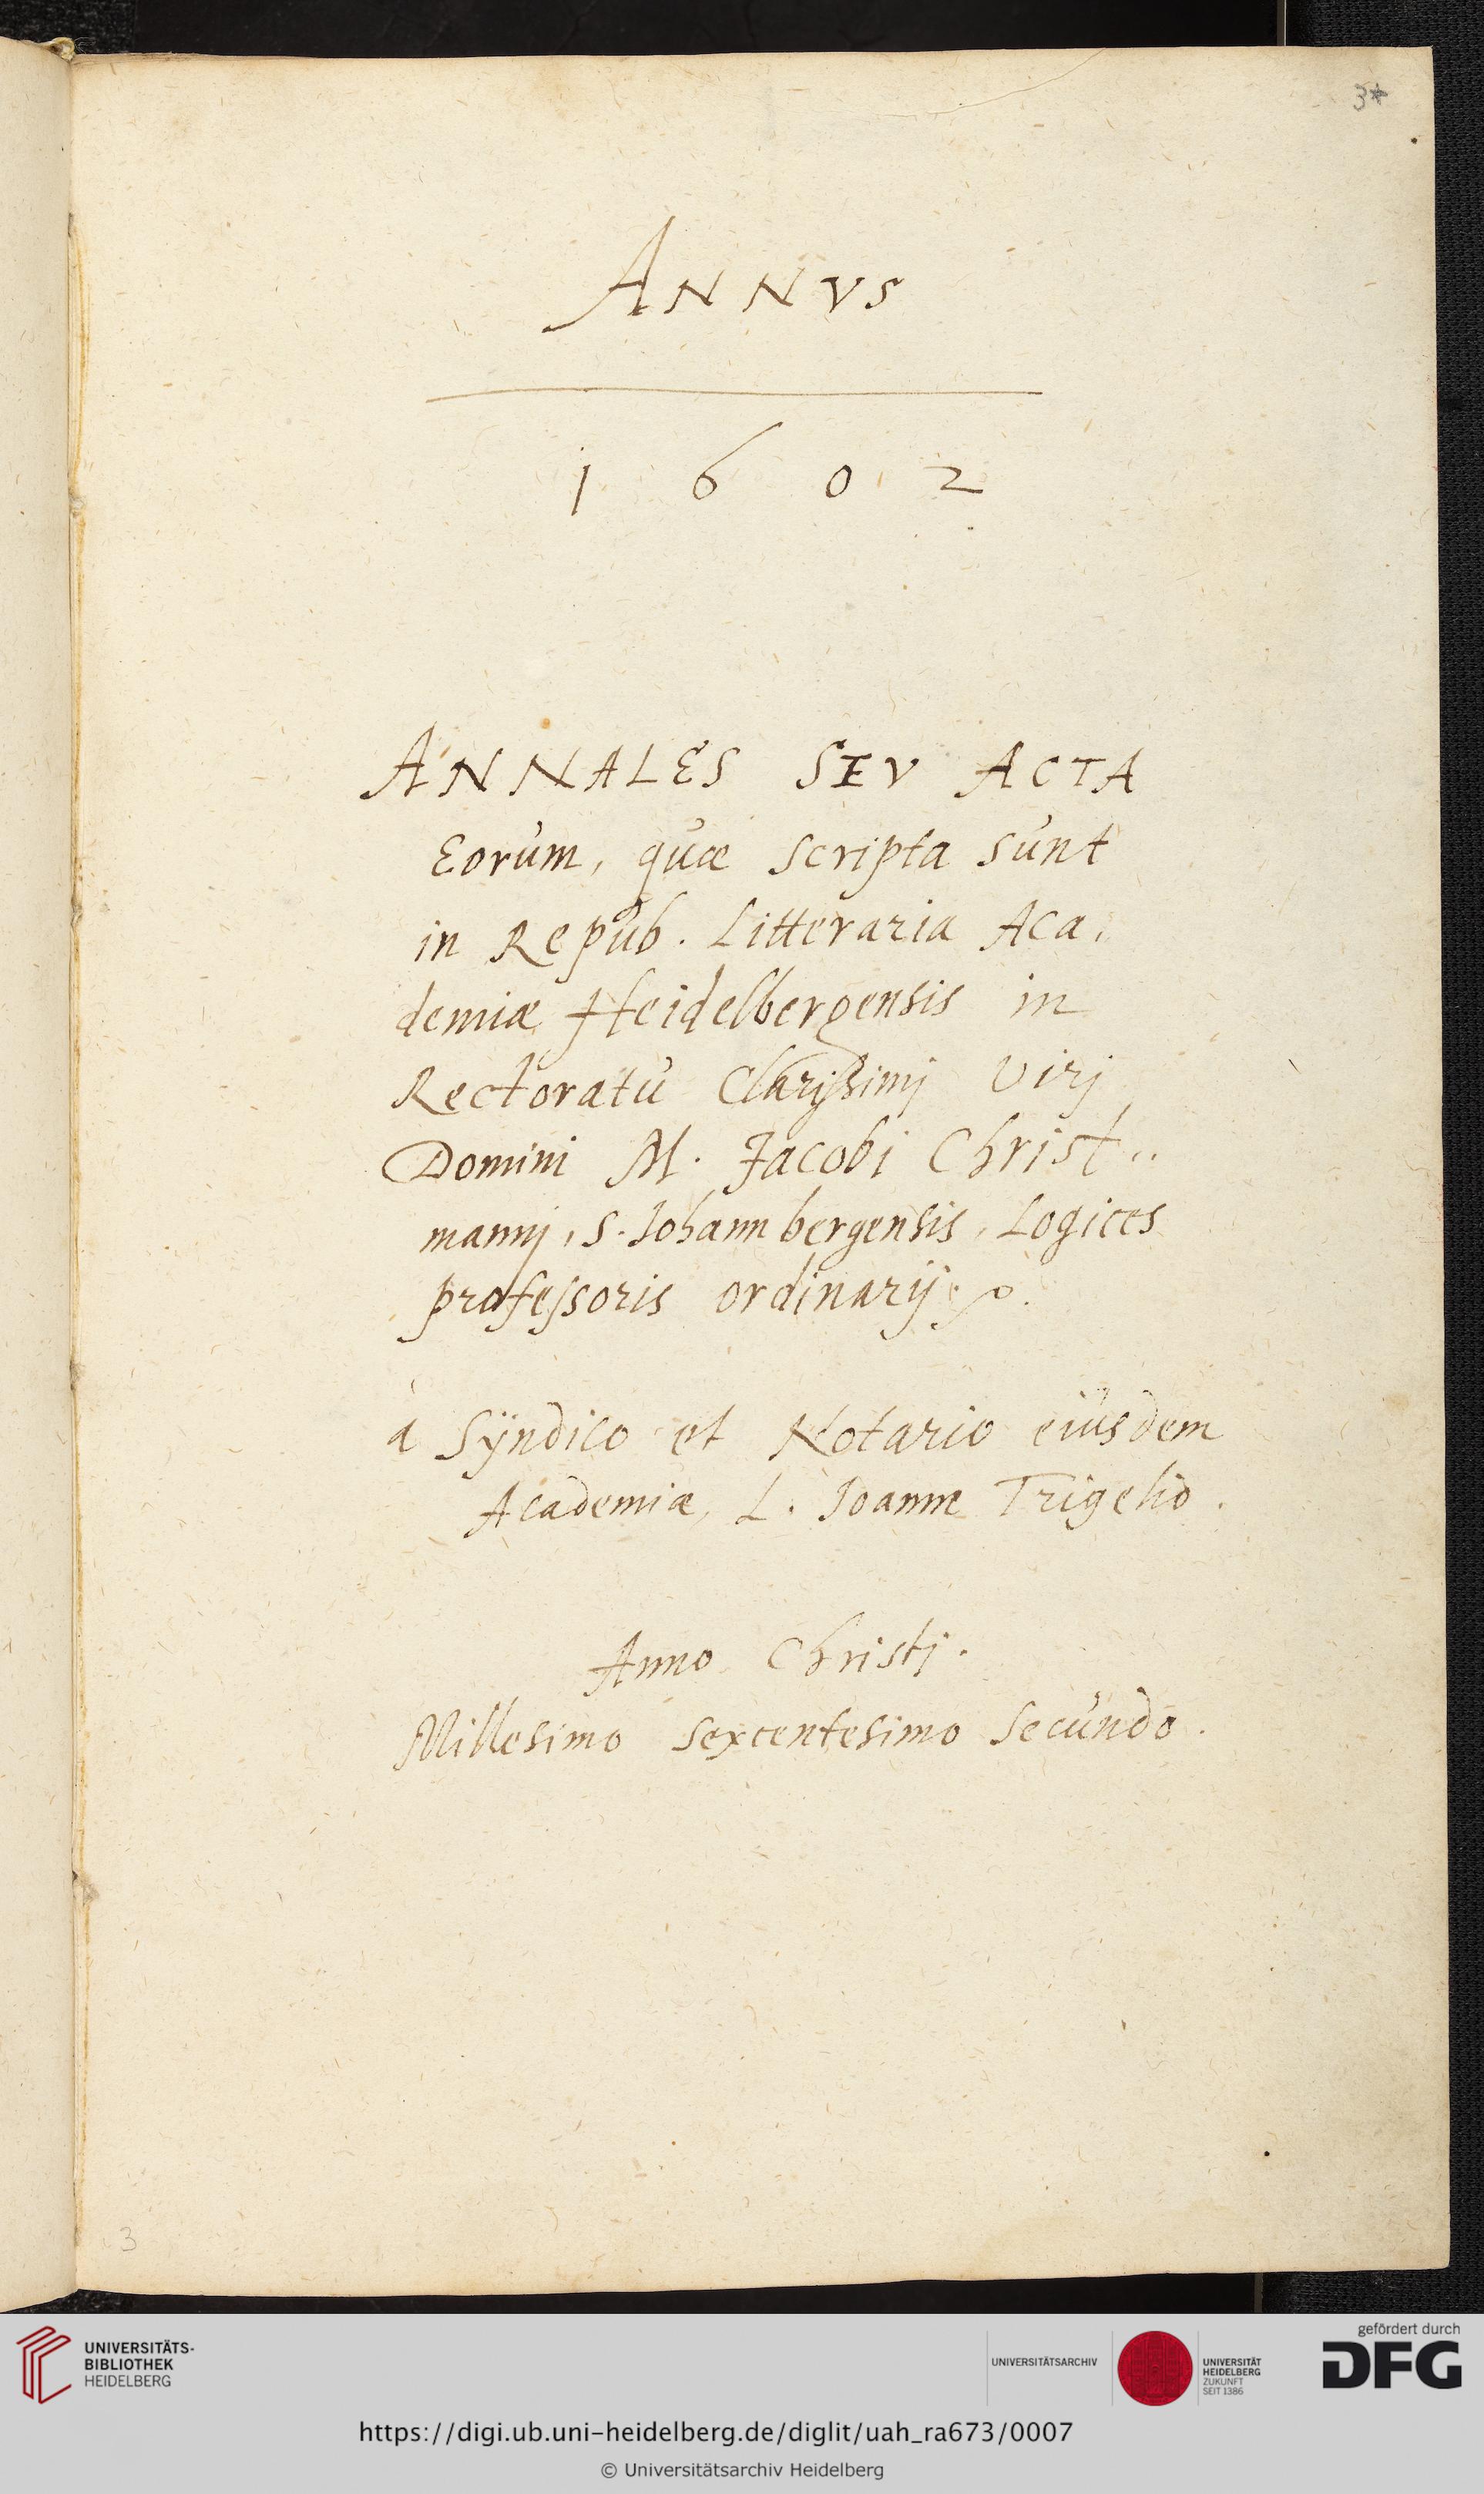 3*
ANNVS
1602
ANNALES SEV ACTA
Eorum, quæ scripta sunt
in Repub. Litteraria Aca,
demiæ Heidelbergensis in
Rectoratu Clarissimj Virj
Domini M. Jacobi Christ..
mannj, S. Johannbergensis, Logices
professoris ordinarij
a Syndico et Notario eiusdem
Academiæ, L. Joanne Trigelio.
Anno Christj.
Millesimo sexcentesimo Secundo.
3
UNIVERSITÄTS-
BIBLIOTHEK
HEIDELBERG
UNIVERSITÄTSARCHIV
UNIVERSITÄT
HEIDELBERG
ZUKUNFT
SEIT 1386
gefördert durch
DFG
https://digi.ub.uni-heidelberg.de/diglit/uah_ra673/0007
© Universitätsarchiv Heidelberg